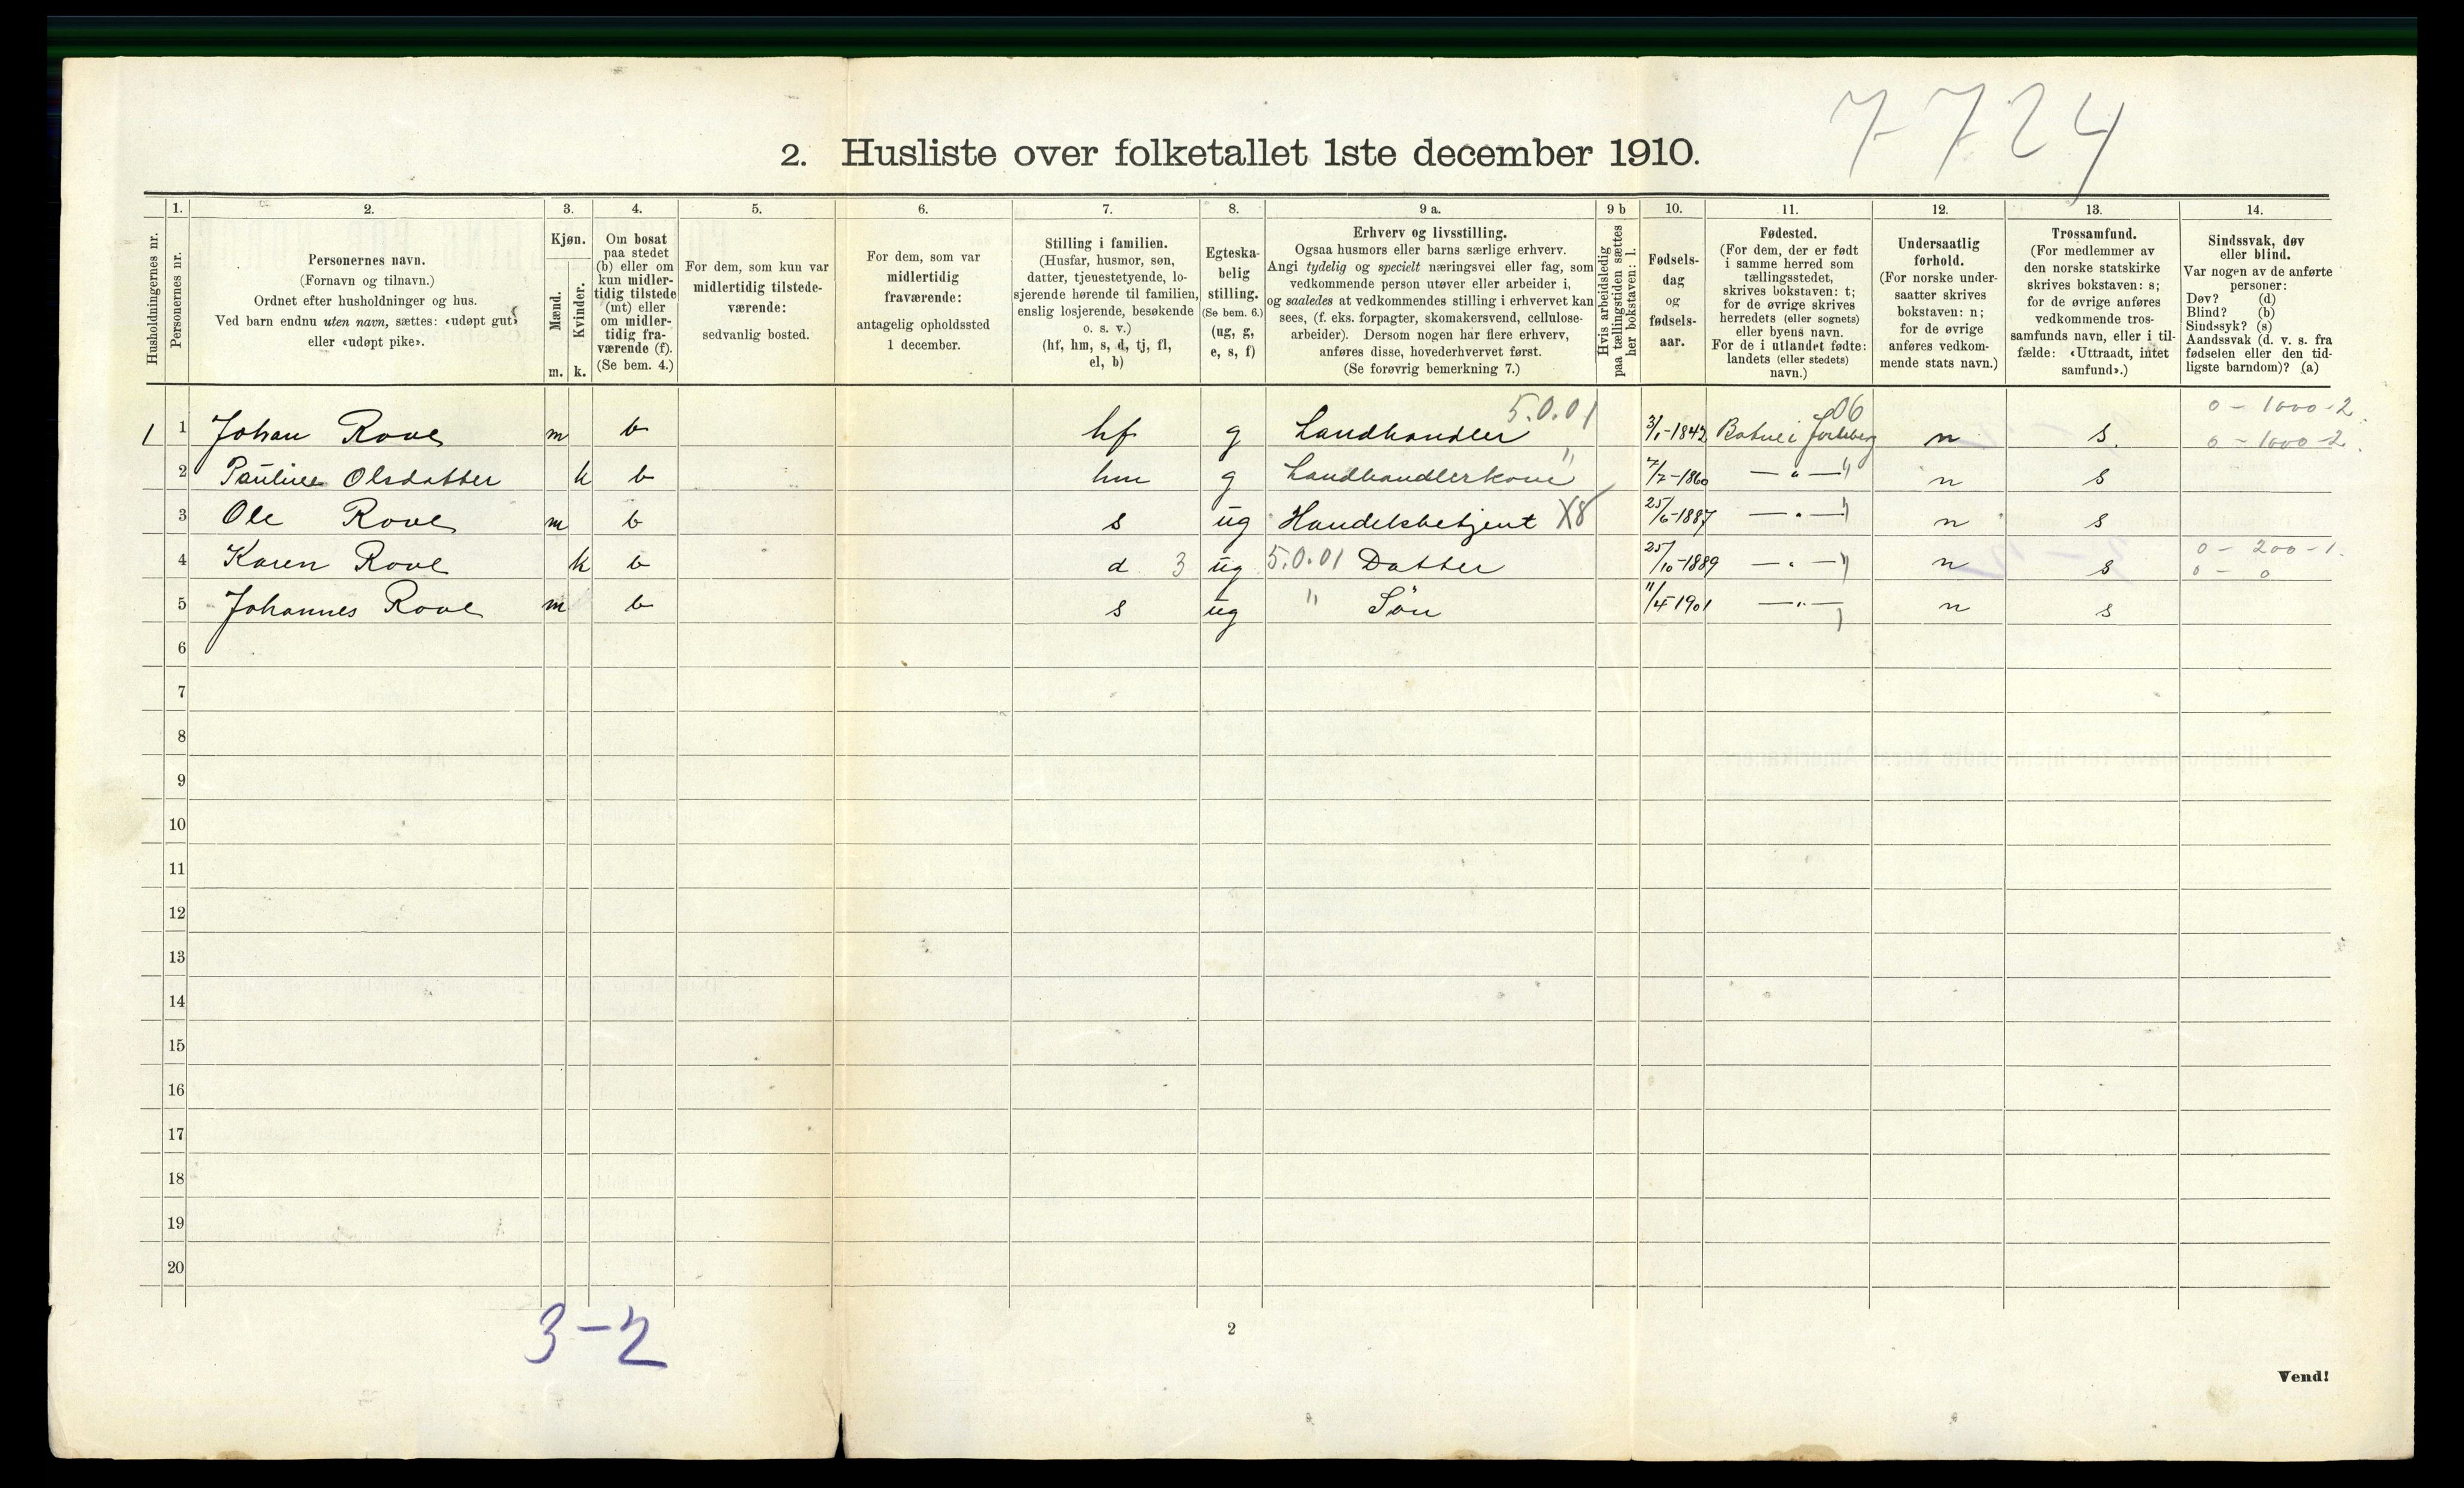 7-724
2. Husliste over folketallet 1ste december 1910.
1. 2. 3. 4. 5. 6. 7. 8. 9 a. 9 b 10. 11. 12. 13. 14.
Husholdningernes nr.
Personernes nr.
Personernes navn.
(Fornavn og tilnavn.)
Ordnet efter husholdninger og hus.
Ved barn endnu uten navn, sættes: «udøpt gut»
eller «udøpt pike».
Kjøn.
Mænd.
Kvinder.
m. k.
Om bosat
paa stedet
(b) eller om
kun midler-
tidig tilstede
(mt) eller
om midler-
tidig fra-
værende (f).
(Se bem. 4.)
For dem, som kun var
midlertidig tilstede-
værende:
sedvanlig bosted.
For dem, som var
midlertidig
fraværende:
antagelig opholdssted
1 december.
Stilling i familien.
(Husfar, husmor, søn,
datter, tjenestetyende, lo-
sjerende hørende til familien,
enslig losjerende, besøkende
o. s. v.)
(hf, hm, s, d, tj, fl,
el, b)
Egteska-
belig
stilling.
(Se bem. 6.)
(ug, g,
e, s, f)
Erhverv og livsstilling.
Ogsaa husmors eller barns særlige erhverv.
Angi tydelig og specielt næringsvei eller fag, som
vedkommende person utøver eller arbeider i,
og saaledes at vedkommendes stilling i erhvervet kan
sees, (f. eks. forpagter, skomakersvend, cellulose-
arbeider). Dersom nogen har flere erhverv,
anføres disse, hovederhvervet først.
(Se forøvrig bemerkning 7.)
Hvis arbeidsledig
paa tællingstiden sættes
her bokstaven: l.
Fødsels-
dag
og
fødsels-
aar.
Fødested.
(For dem, der er født
i samme herred som
tællingsstedet,
skrives bokstaven: t;
for de øvrige skrives
herredets (eller sognets)
eller byens navn.
For de i utlandet fødte:
landets (eller stedets)
navn.)
Undersaatlig
forhold.
(For norske under-
saatter skrives
bokstaven: n;
for de øvrige
anføres vedkom-
mende stats navn.)
Trossamfund.
(For medlemmer av
den norske statskirke
skrives bokstaven: s;
for de øvrige anføres
vedkommende tros-
samfunds navn, eller i til-
fælde: «Uttraadt, intet
samfund».)
Sindssvak, døv
eller blind.
Var nogen av de anførte
personer:
Døv? (d)
Blind? (b)
Sindssyk? (s)
Aandssvak (d. v. s. fra
fødselen eller den tid-
ligste barndom)? (a)
5.0.01 06 0 - 1000-2
1 1 Johan Rove m b hf g Landhandler 3/1-1842 Botne i Jarlsberg n s. 0 - 1000-2
2 Pauline Olsdatter k b hm g Landhandlerkone " 7/7-1860 — " — n s
3 Ole Rove m b s ug Handelsbetjent X8 25/6-1887 — " — n s
4 Karen Rove k b d 3 ug 5.0.01 Datter 25/10-1889 — " — n s 0 - 200-1. 0 - 0
5 Johannes Rove m b s ug " Søn 11/4-1901 — " — n s
6
7
8
9
10
11
12
13
14
15
16
17
18
19
20
3-2
2
Vend!